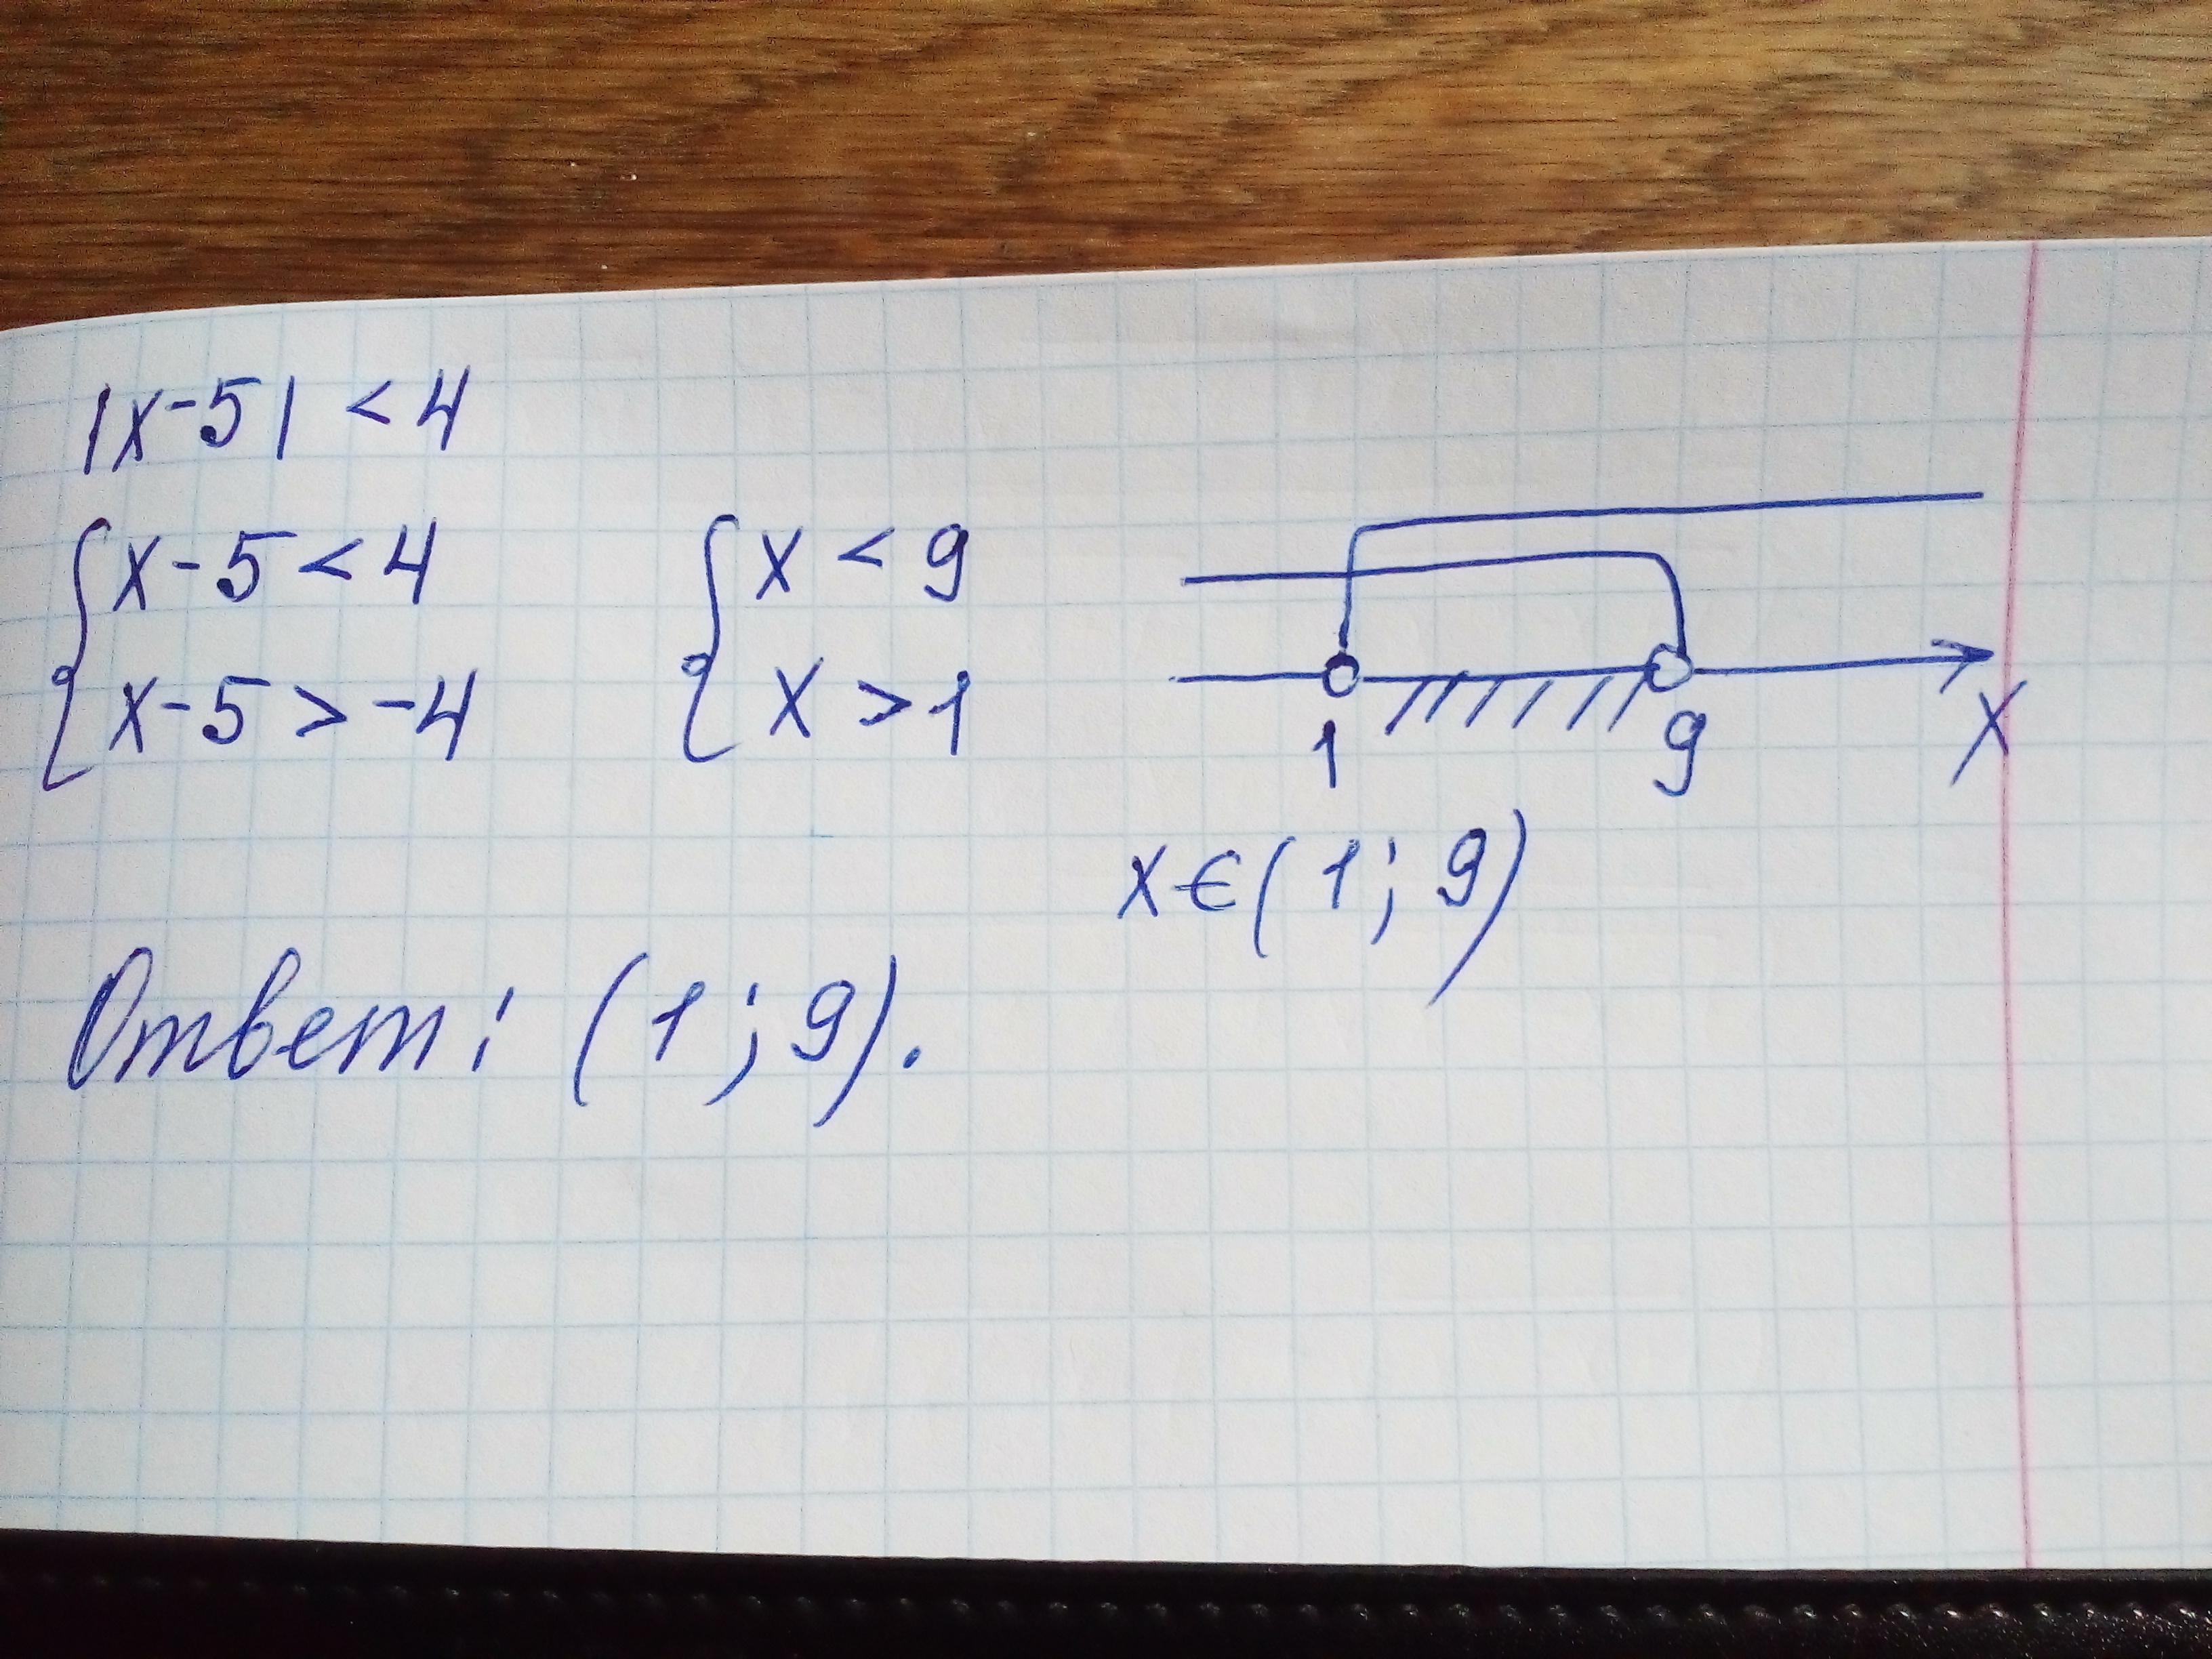 |x-5| < 4
{ x-5 < 4
x-5 > -4
{ x < 9
x > 1
1 9 x
x ∈ (1; 9)
Ответ: (1; 9).